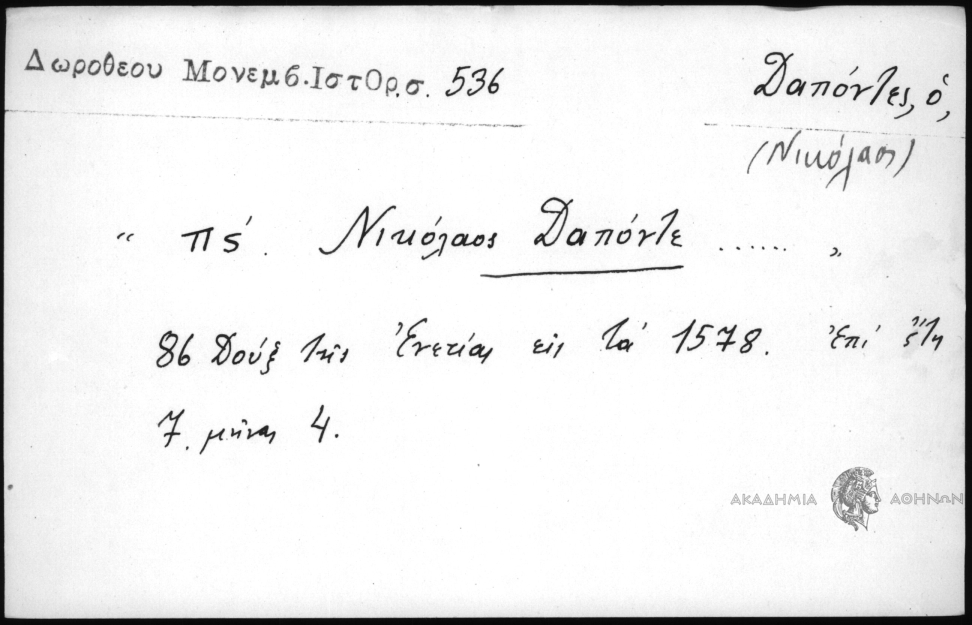 Δωροθεου Μονεμβ.ΙστΟρ.σ. 536
Δαπόντες, ὁ,
(Νικόλαος)
“ πς΄. Νικόλαος Δαπόντε ...... „
86 Δούξ τῆς Ἑνετίας εἰς τά 1578. Ἐπί ἔτη
7. μῆνας 4.
ΑΚΑΔΗΜΙΑ ΑΘΗΝΩΝ